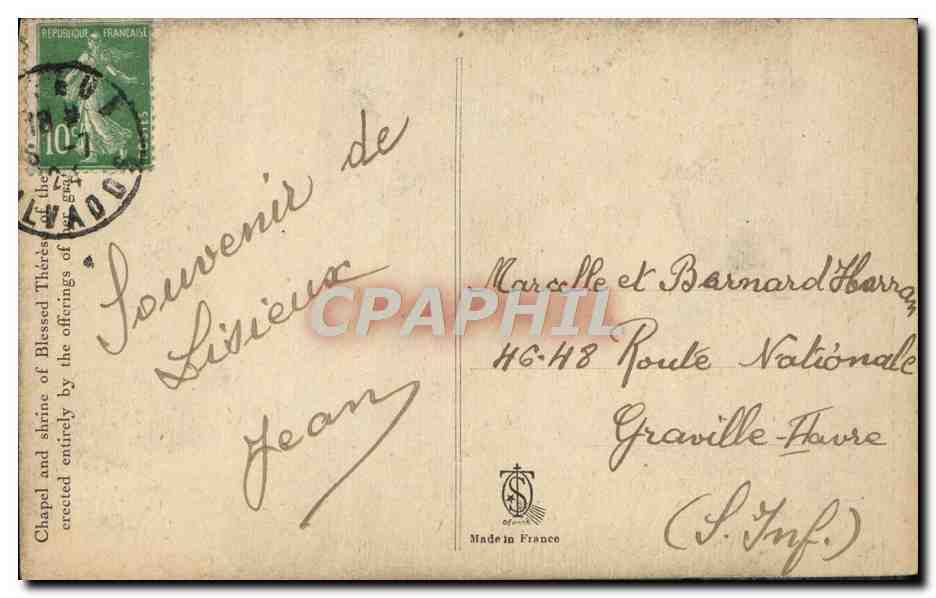 REPUBLIQUE FRANÇAISE
10c
POSTES
Chapel and shrine of Blessed Thérèse of the
erected entirely by the offerings of her
Souvenir de
Lisieux
Jean
Marcelle et Bernard
46-48 Route Nationale
Graville-Havre
(S. Inf.)
CPAPHIL
Made in France